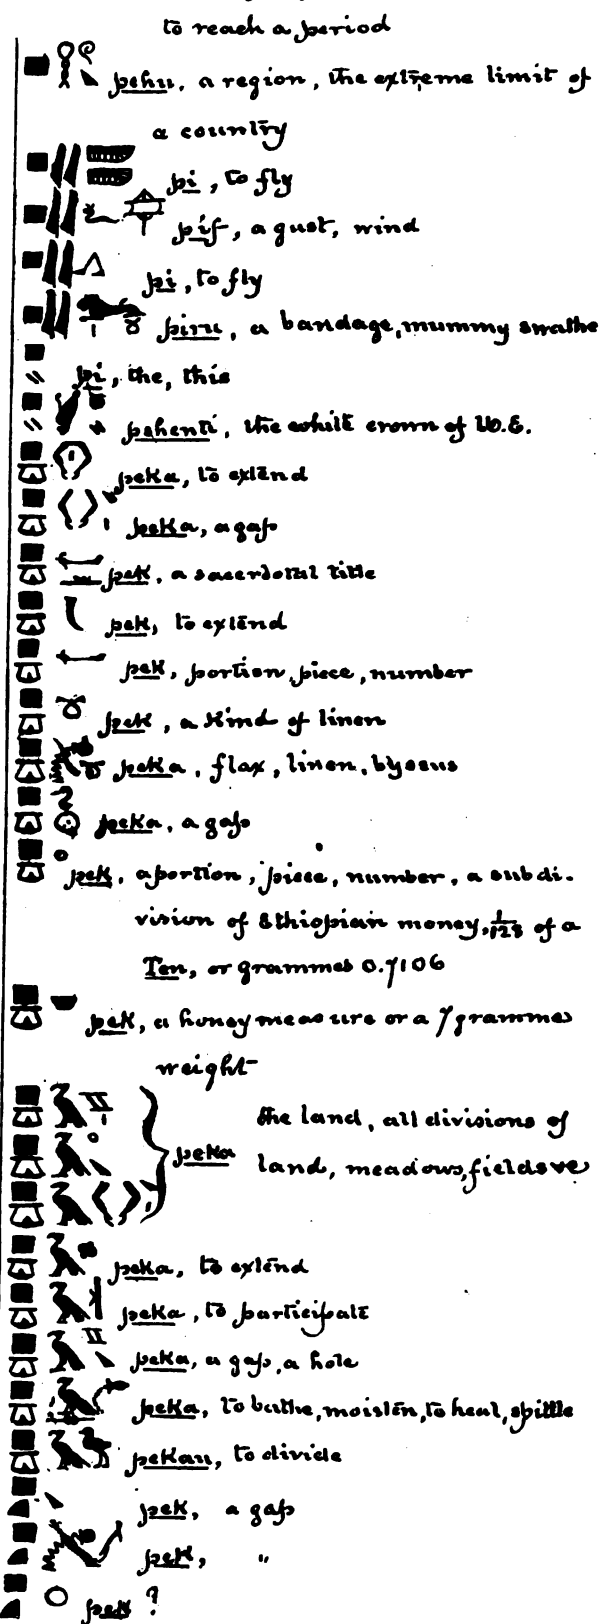 to reach a period
pehu, a region, the extreme limit of
a country
pi, to fly
pif, a gust, wind
pi, to fly
piru, a bandage, mummy swathe
pi, the, this
pshenti, the white crown of U.E.
peka, to extend
peka, a gap
pek, a sacerdotal title
pek, to extend
pek, portion, piece, number
pek, a kind of linen
peka, flax, linen, byssus
peka, a gap
pek, a portion, piece, number, a subdi-
vision of Ethiopian money, 1/128 of a
Ten, or grammes 0.7106
pek, a honey measure or a 7 gramme
weight
the land, all divisions of
peka land, meadows, fields
peka, to extend
peka, to participate
peka, a gap, a hole
peka, to bathe, moisten, to heal, spittle
pekau, to divide
pek, a gap
pek, "
pek ?